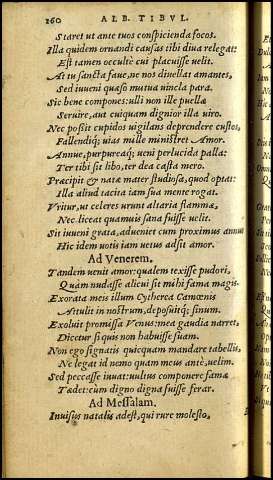 260 ALB. TIBVL.
Staret ut ante tuos conspicienda focos.
Illa quidem ornandi causas tibi diua relegat:
Est tamen occultè cui placuisse uelit.
At tu sancta faue, ne nos diuellat amantes,
Sed iuueni quæso mutua uincla para.
Sic bene compones: ulli non ille puellæ
Seruire, aut cuiquam dignior illa uiro.
Nec possit cupidos uigilans deprendere custos,
Fallendiq; uias mille ministret Amor.
Annue, purpureaq; ueni perlucida palla:
Ter tibi fit libo, ter dea casta mero.
Præcipit & natæ mater studiosa, quod optat:
Illa aliud tacita iam sua mente rogat.
Vritur, ut celeres urunt altaria flammæ,
Nec liceat quamuis sana fuisse uelit.
Sit iuueni grata, adueniet cum proximus annus
Hic idem uotis iam uetus adsit amor.
Ad Venerem.
Tandem uenit amor: qualem texisse pudori,
Quàm nudasse alicui sit mihi fama magis.
Exorata meis illum Cytherea Camœnis
Attulit in nostrum, deposuitq; sinum.
Exoluit promissa Venus: mea gaudia narret,
Dicetur si quis non habuisse suam.
Non ego signatis quicquam mandare tabellis,
Ne legat id nemo quàm meus antè, uelim.
Sed peccasse iuuat: uultus componere famæ
Tædet: cum digno digna fuisse ferar.
Ad Messalam.
Inuisus natalis adest, qui rure molesto,